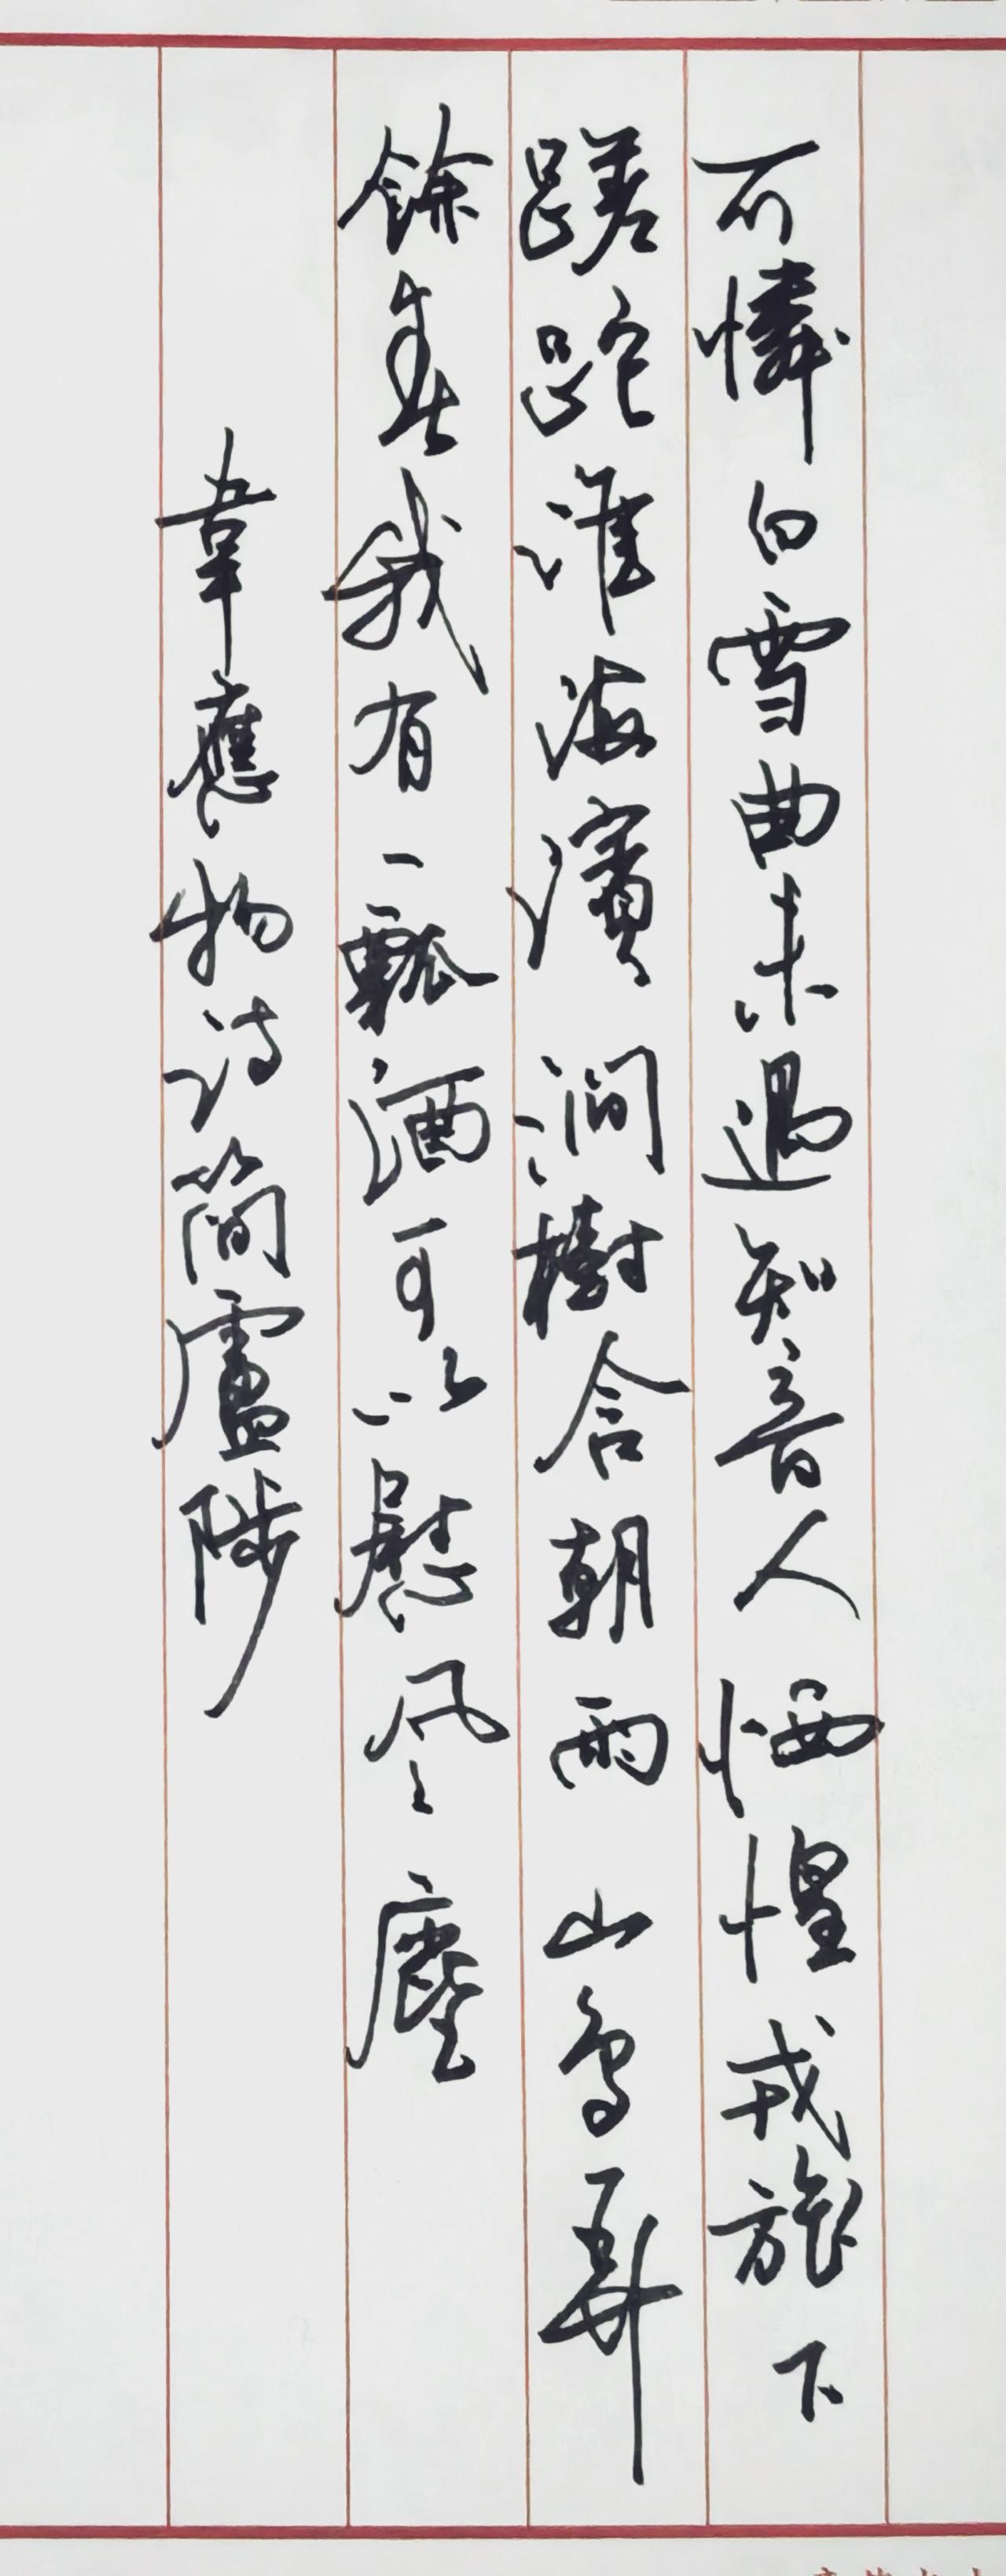 可憐白雪曲未遇知音人恓惶戎旅下
蹉跎淮海濱澗樹含朝雨山鳥哢
餘春我有一瓢酒可以慰風塵
韋應物詩簡盧陟